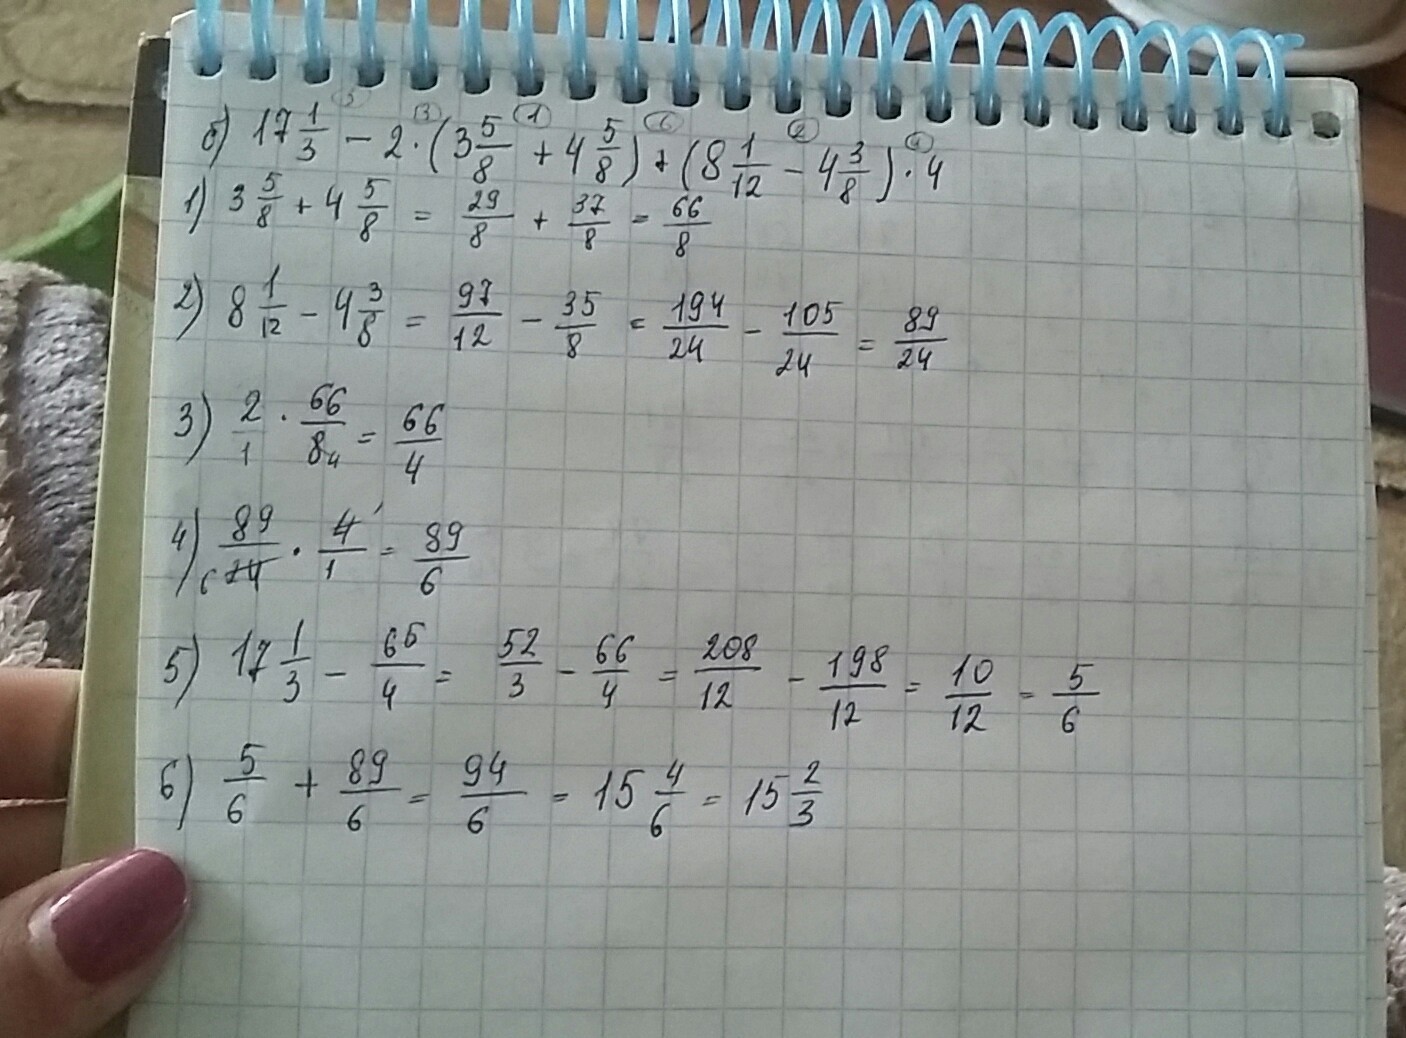 б) 17 1/3 − 2 · (3 5/8 + 4 5/8) + (8 1/12 − 4 3/8) · 4
1) 3 5/8 + 4 5/8 = 29/8 + 37/8 = 66/8
2) 8 1/12 − 4 3/8 = 97/12 − 35/8 = 194/24 − 105/24 = 89/24
3) 2/1 · 66/8 4 = 66/4
4) 89/24 6 · 4/1 1 = 89/6
5) 17 1/3 − 65/4 = 52/3 − 66/4 = 208/12 − 198/12 = 10/12 = 5/6
6) 5/6 + 89/6 = 94/6 = 15 4/6 = 15 2/3